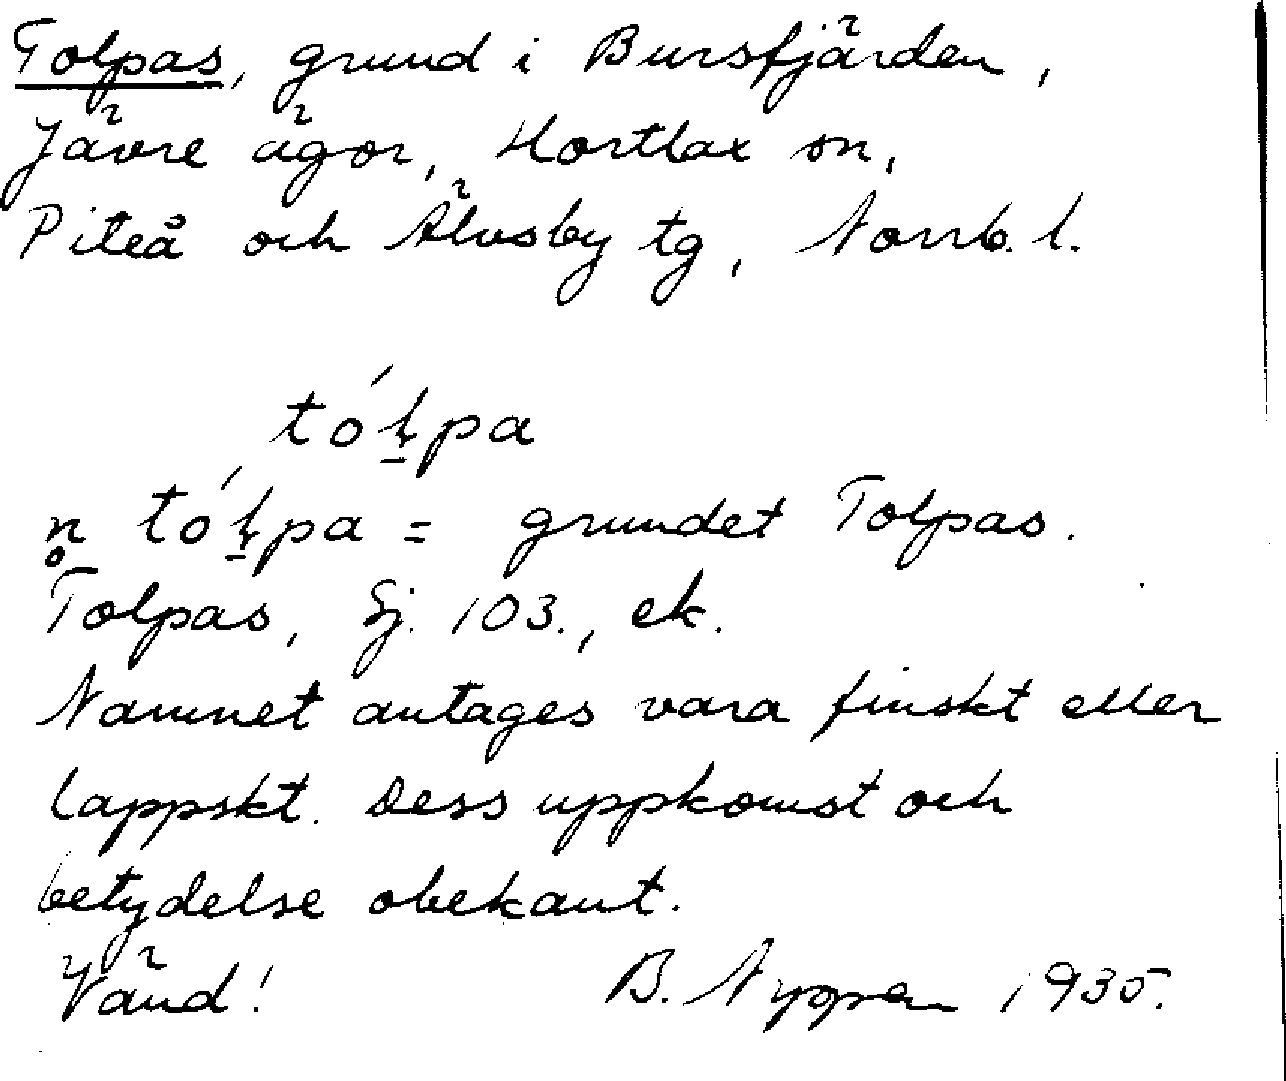 Tolpas, grund i Bursfjärden,
Jävre ägor, Hortlax sn,
Piteå och Älvsby tg, Norrb. l.
tółpa
n̥ tółpa = grundet Tolpas.
Tolpas, Sj. 103., ek.
Namnet antages vara finskt eller
lappskt. Dess uppkomst och
betydelse obekant.
Vänd! B. 1935.